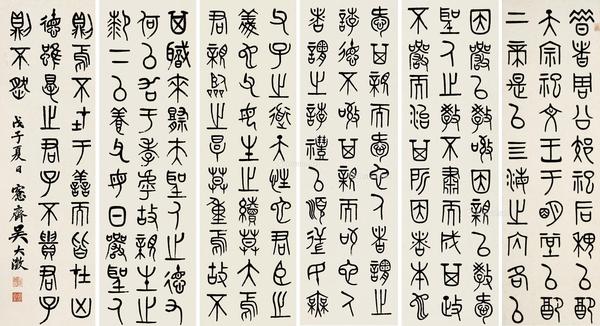 昔者周公郊祀后稷以配
天宗祀文王于明堂以配
上帝是以四海之内各以
因嚴以教敬因親以教愛
聖人之教不肅而成其政
不嚴而治其所因者本也
愛其親而愛他人者謂之
誖德不敬其親而敬他人
者謂之誖禮以順逆民無
父子之道天性也君臣之
義也父母生之續莫大焉
君親臨之厚莫重焉故不
其職來祭夫聖人之德又
何以加于孝乎故親生之
厀下以養父母日嚴聖人
則焉不在于善而皆在凶
德雖得之君子不貴君子
則不然 戊子夏日 愙齋吳大澂